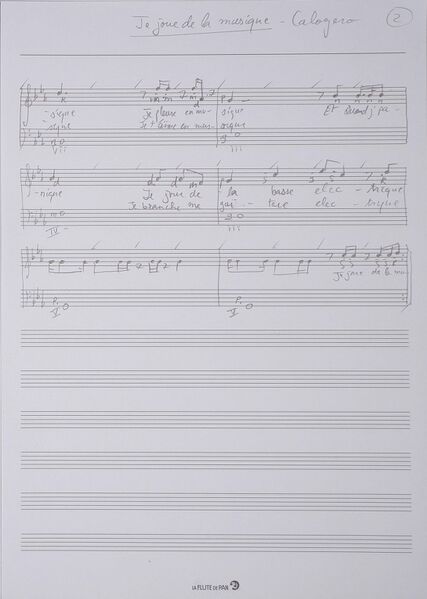 Je joue de la musique - Calogero 2
-sique Je pleure en mu- sique Et quand j'pa-
sique Je t'aime en mu- sique
VII III
-nique Je joue de la basse élec - trique
Je branche ma gui - tare élec - trique
IV III
Je joue de la mu-
P. V P. V
LA FLUTE DE PAN